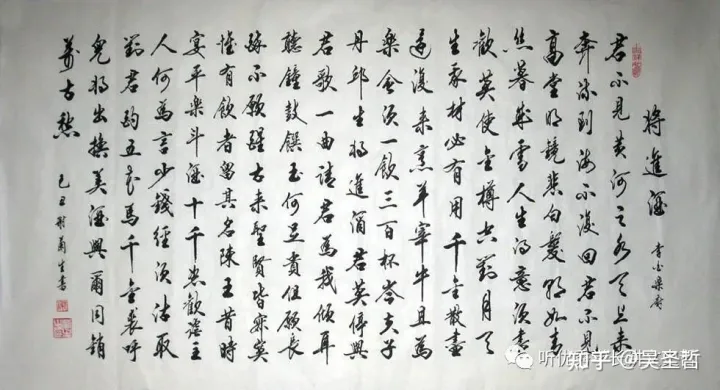 將進酒 李白樂府
君不見黃河之水天上來
奔流到海不復回君不見
高堂明鏡悲白髮朝如青
絲暮成雪人生得意須盡
歡莫使金樽空對月天
生我材必有用千金散盡
還復來烹羊宰牛且為
樂會須一飲三百杯岑夫子
丹邱生將進酒君莫停與
君歌一曲請君為我傾耳
聽鐘鼓饌玉何足貴但願長
醉不願醒古來聖賢皆寂寞
惟有飲者留其名陳王昔時
宴平樂斗酒十千恣歡謔主
人何為言少錢經須沽取
對君酌五花馬千金裘呼
兒將出換美酒與爾同銷
萬古愁
己丑 生書
知乎 @吴圣哲